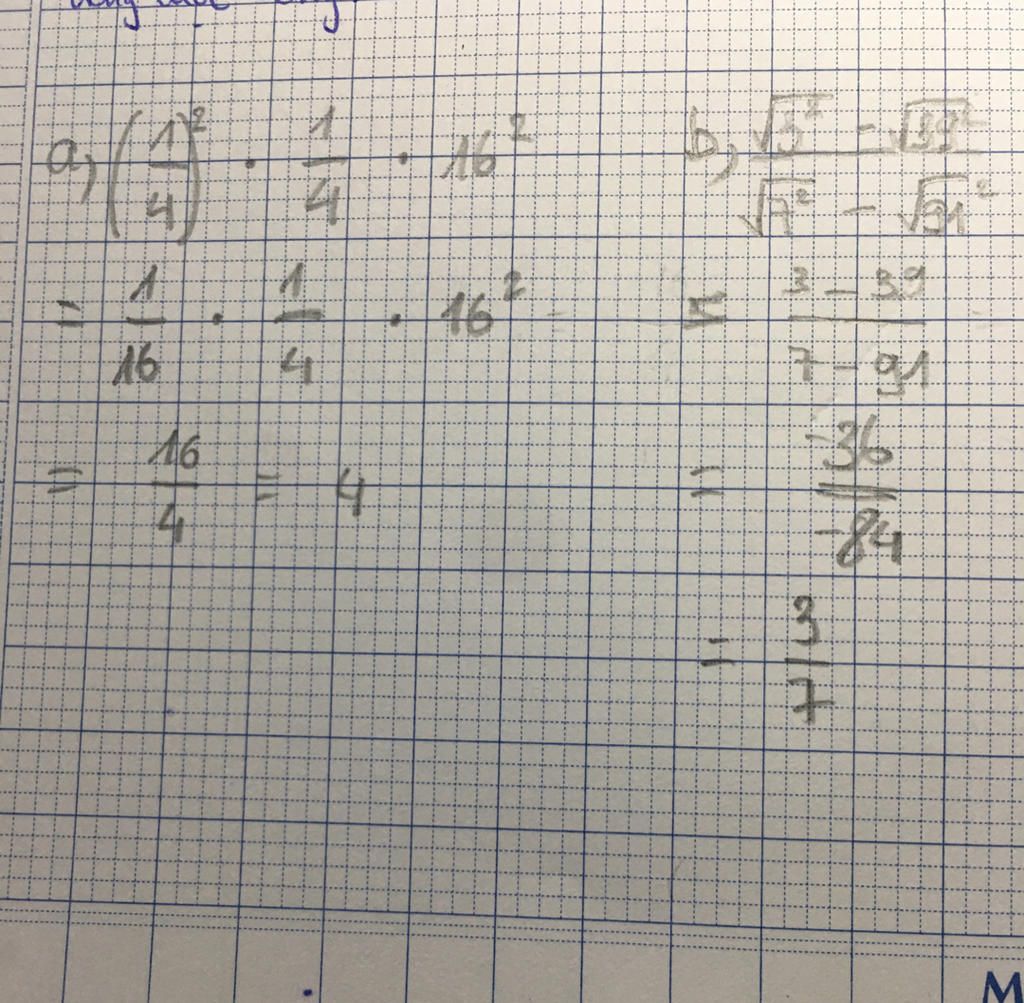 a, (1/4)² · 1/4 · 16²
= 1/16 · 1/4 · 16²
= 16/4 = 4
b, (√3² - √39²)/(√7² - √91²)
= (3 - 39)/(7 - 91)
= -36/-84
= 3/7
M